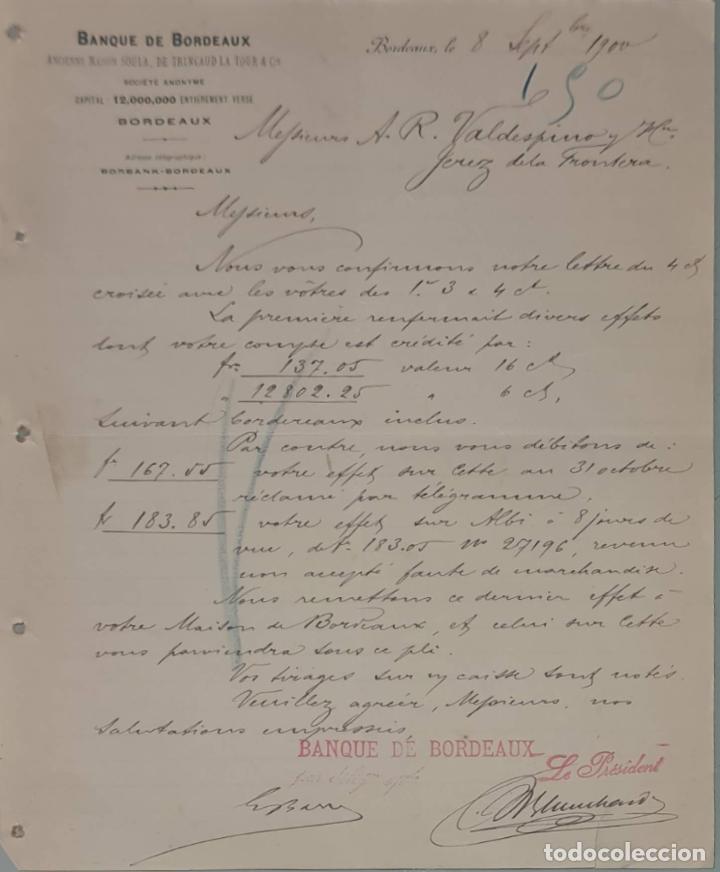 BANQUE DE BORDEAUX
ANCIENNE MAISON SOULA, DE TRINCAUD LA TOUR & Cie
SOCIÉTÉ ANONYME
CAPITAL : 12,000,000 ENTIÈREMENT VERSÉ
BORDEAUX
Adresse télégraphique :
BORBANK-BORDEAUX
Bordeaux, le 8 Septbre 1900
150
Messieurs A. R. Valdespino y Hno
Jerez de la Frontera.
Messieurs,
Nous vous confirmons notre lettre du 4 ct
croisée avec les vôtres des 1er 3 & 4 ct.
La première renfermait divers effets
dont votre compte est crédité par :
frs 137.05 valeur 16 ct
" 12802.25 " 6 ct,
suivant bordereaux inclus.
Par contre, nous vous débitons de :
fr 167.55 votre effet sur Cette au 31 octobre
réclamé par télégramme.
fr 183.85 votre effet sur Albi à 8 jours de
vue, de fr. 183.05 No 27196, revenu
non accepté faute de marchandise.
Nous remettons ce dernier effet à
votre Maison de Bordeaux, et celui sur Cette
vous parviendra sous ce pli.
Vos tirages sur n/ caisse sont notés.
Veuillez agréer, Messieurs, nos
salutations empressées,
BANQUE DE BORDEAUX
Le Président
todocoleccion.net